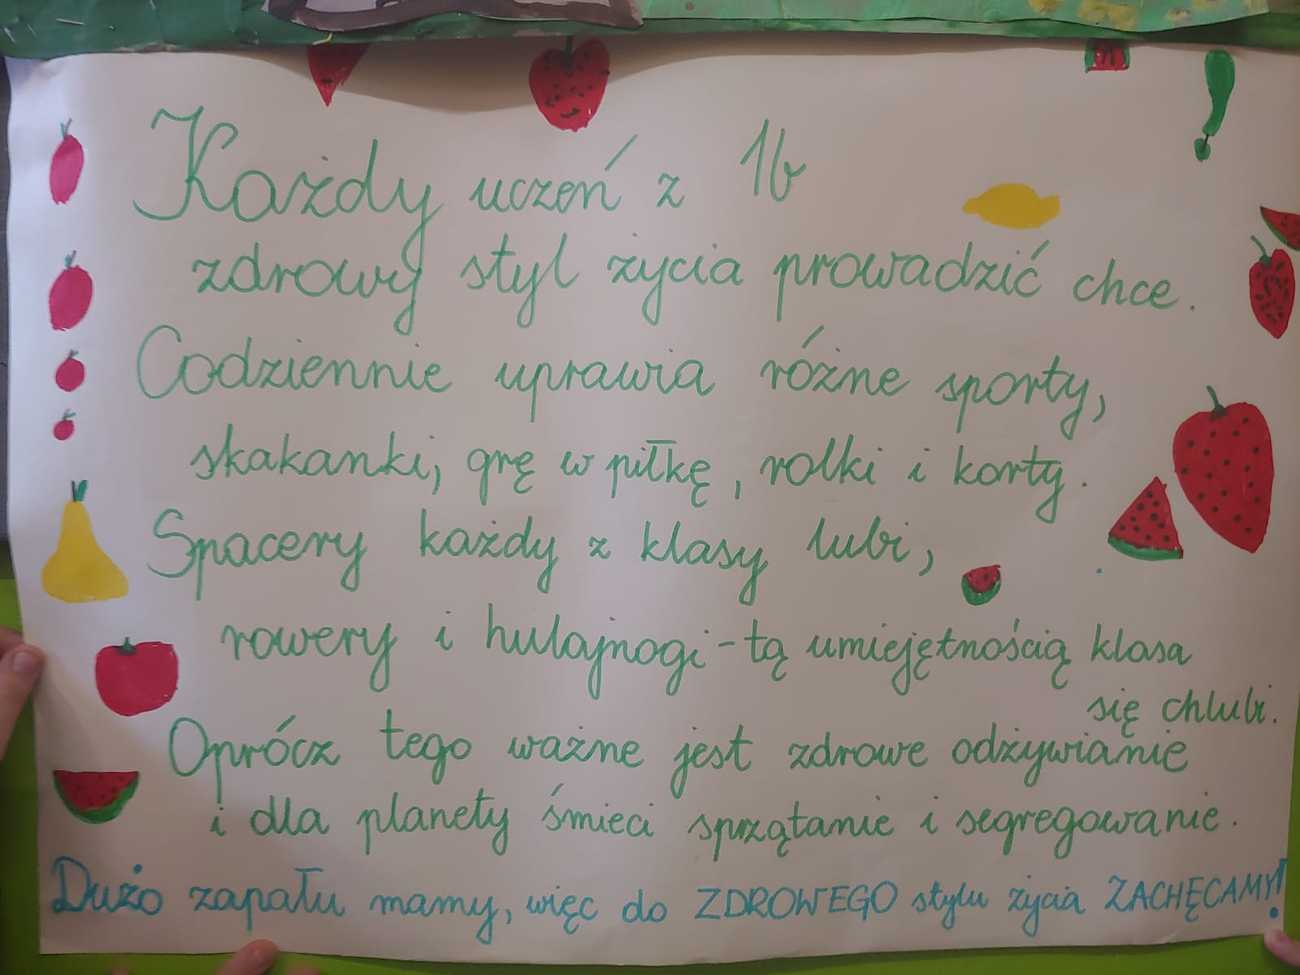 Każdy uczeń z 1b
zdrowy styl życia prowadzić chce.
Codziennie uprawia różne sporty,
skakanki, grę w piłkę, rolki i korty.
Spacery każdy z klasy lubi,
rowery i hulajnogi - tą umiejętnością klasa
się chlubi.
Oprócz tego ważne jest zdrowe odżywianie
i dla planety śmieci sprzątanie i segregowanie.
Dużo zapału mamy, więc do ZDROWEGO stylu życia ZACHĘCAMY!